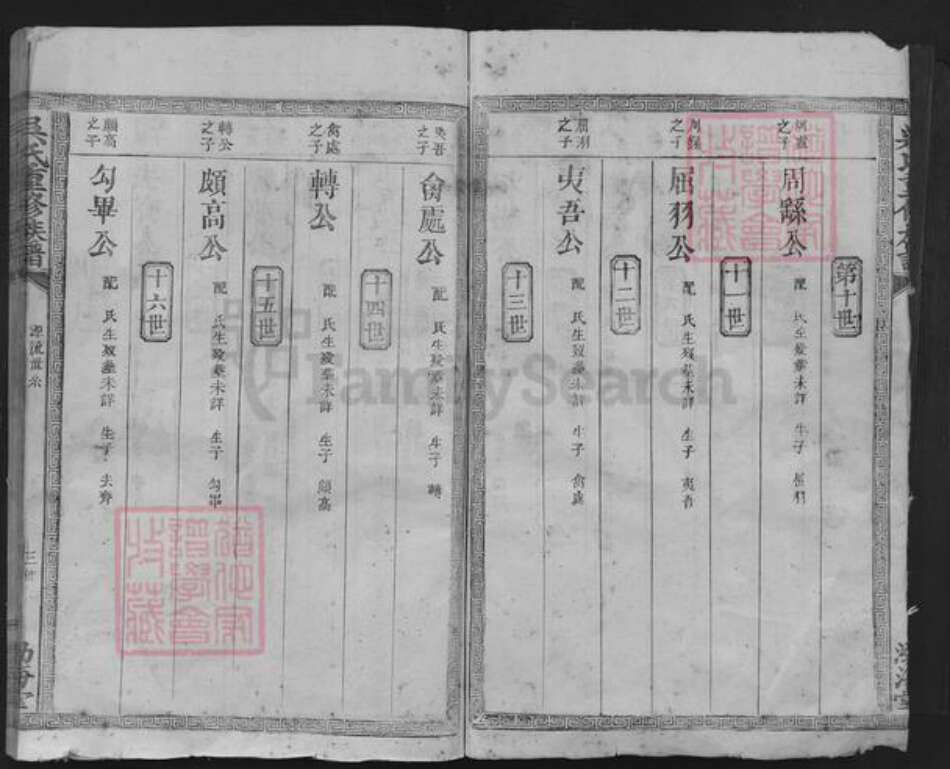 第十世
周繇公
之子
配 氏生歿葬未詳 生子 屈羽
十一世
周繇
之子
屈羽公
配 氏生歿葬未詳 生子 夷吾
十二世
屈羽
之子
夷吾公
配 氏生歿葬未詳 生子 禽處
十三世
夷吾
之子
禽處公
配 氏生歿葬未詳 生子 轉
十四世
禽處
之子
轉公
配 氏生歿葬未詳 生子 頗高
十五世
轉公
之子
頗高公
配 氏生歿葬未詳 生子 勾畢
十六世
頗高
之子
勾畢公
配 氏生歿葬未詳 生子 去齊
吳氏重修族譜
源流世系
渤海堂
FamilySearch